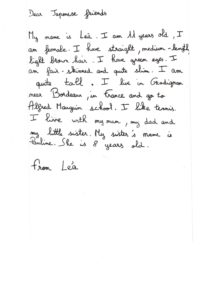 Dear Japenese friends
My name is Leá. I am 11 years old, I
am female. I have straight, medium-length,
light brown hair. I have green eyes. I
am fair-skinned and quite slim. I am
quite tall. I live in Gradignan
near Bordeaux, in France and go to
Alfred Mauguin school. I like tennis.
I live with my mum, my dad and
my little sister. My sister's name is
Pauline. She is 8 years old.
from Leá